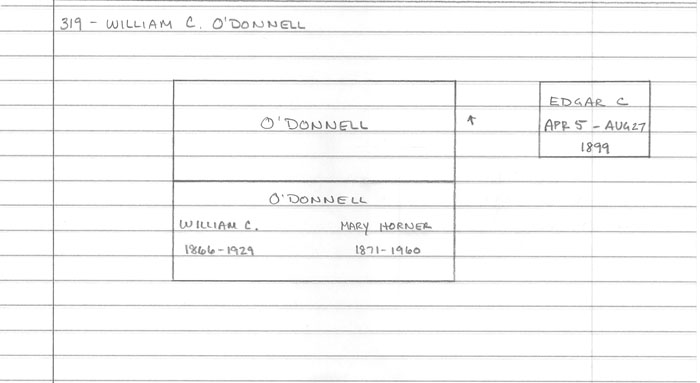 319 - WILLIAM C. O'DONNELL
O'DONNELL
↑
EDGAR C
APR 5 - AUG 27
1899
O'DONNELL
WILLIAM C. MARY HORNER
1866-1929 1871-1960